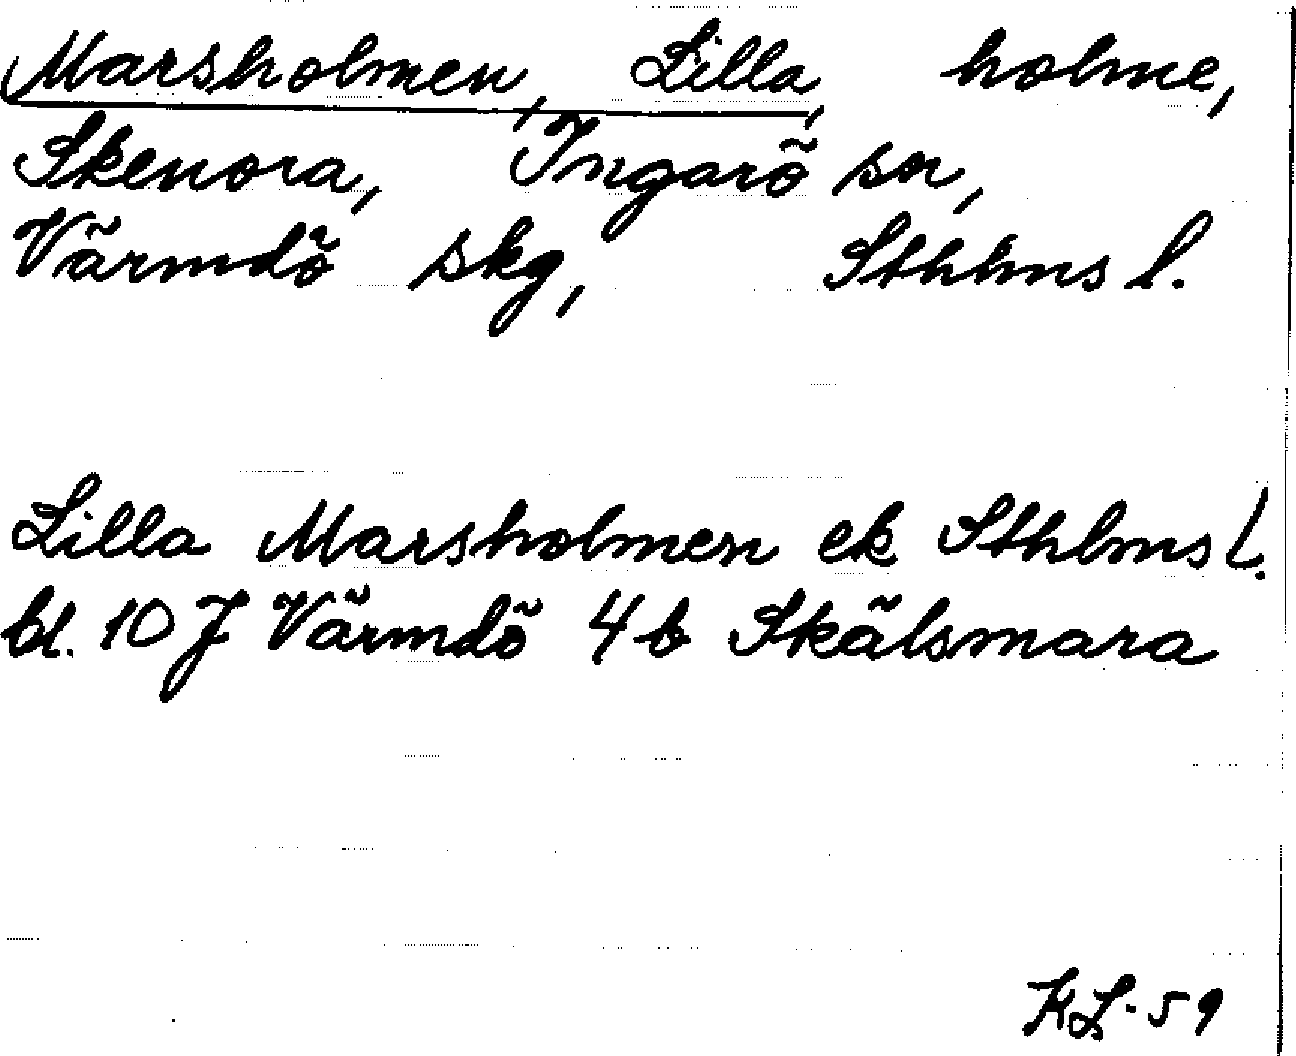 Marsholmen, Lilla, holme,
Skenora, Ingarö sn,
Värmdö skg, Sthlms l.
Lilla Marsholmen ek Sthlms l.
bl. 10 J Värmdö 4 b Skälsmara
KL-59